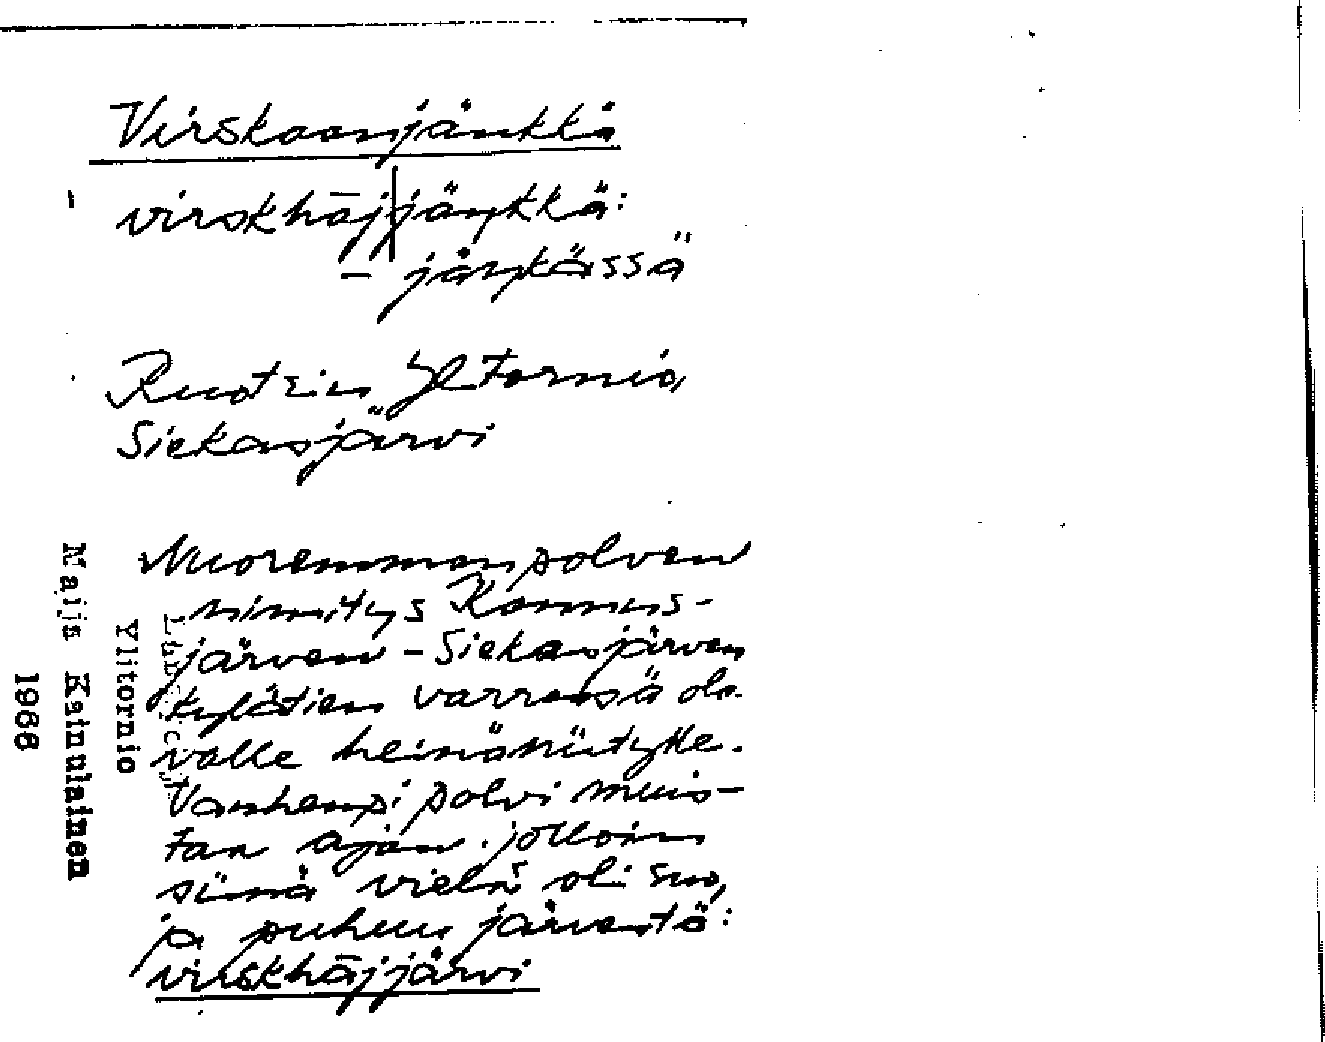 Virskaanjänkkä
virskhāj|jäŋkkä:
– jäŋkässä
Ruotsin Ylitornio,
Siekasjärvi
Nuoremman polven
nimitys Kannus-
järven – Siekasjärven
kylätien varressä ole-
valle heinäniitylle.
Vanhempi polvi muis-
taa ajan jolloin
siinä vielä oli suo,
ja puhuu järvestä:
virskhājjärvi
Ylitornio
Maija Kainulainen
1968